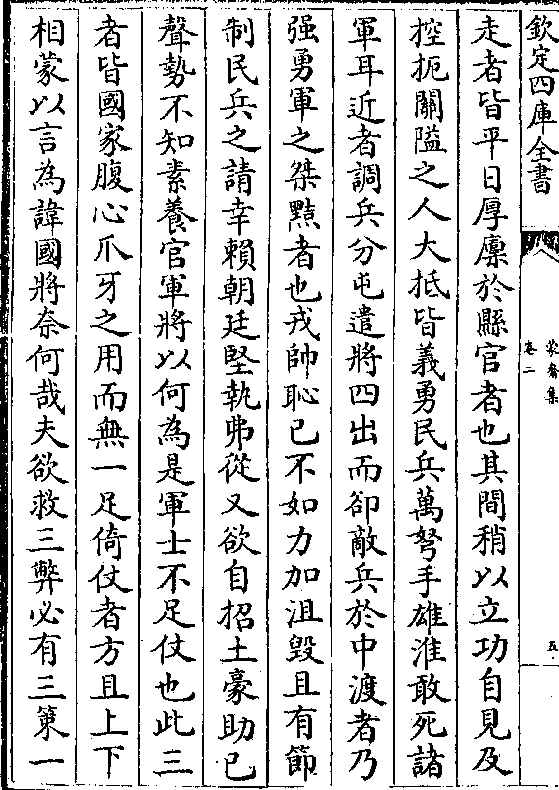 欽定四庫全書
蒙齋集
卷二
五
走者皆平日厚廪於縣官者也其間稍以立功自見及
控扼關隘之人大抵皆義勇民兵萬弩手雄淮敢死諸
軍耳近者調兵分屯遣將四出而卻敵兵於中渡者乃
强勇軍之桀黠者也戎帥恥已不如力加沮毀且有節
制民兵之請幸賴朝廷堅執弗從又欲自招土豪助已
聲勢不知素養官軍將以何為是軍士不足仗也此三
者皆國家腹心爪牙之用而無一足倚仗者方且上下
相蒙以言為諱國將奈何哉夫欲救三弊必有三策一